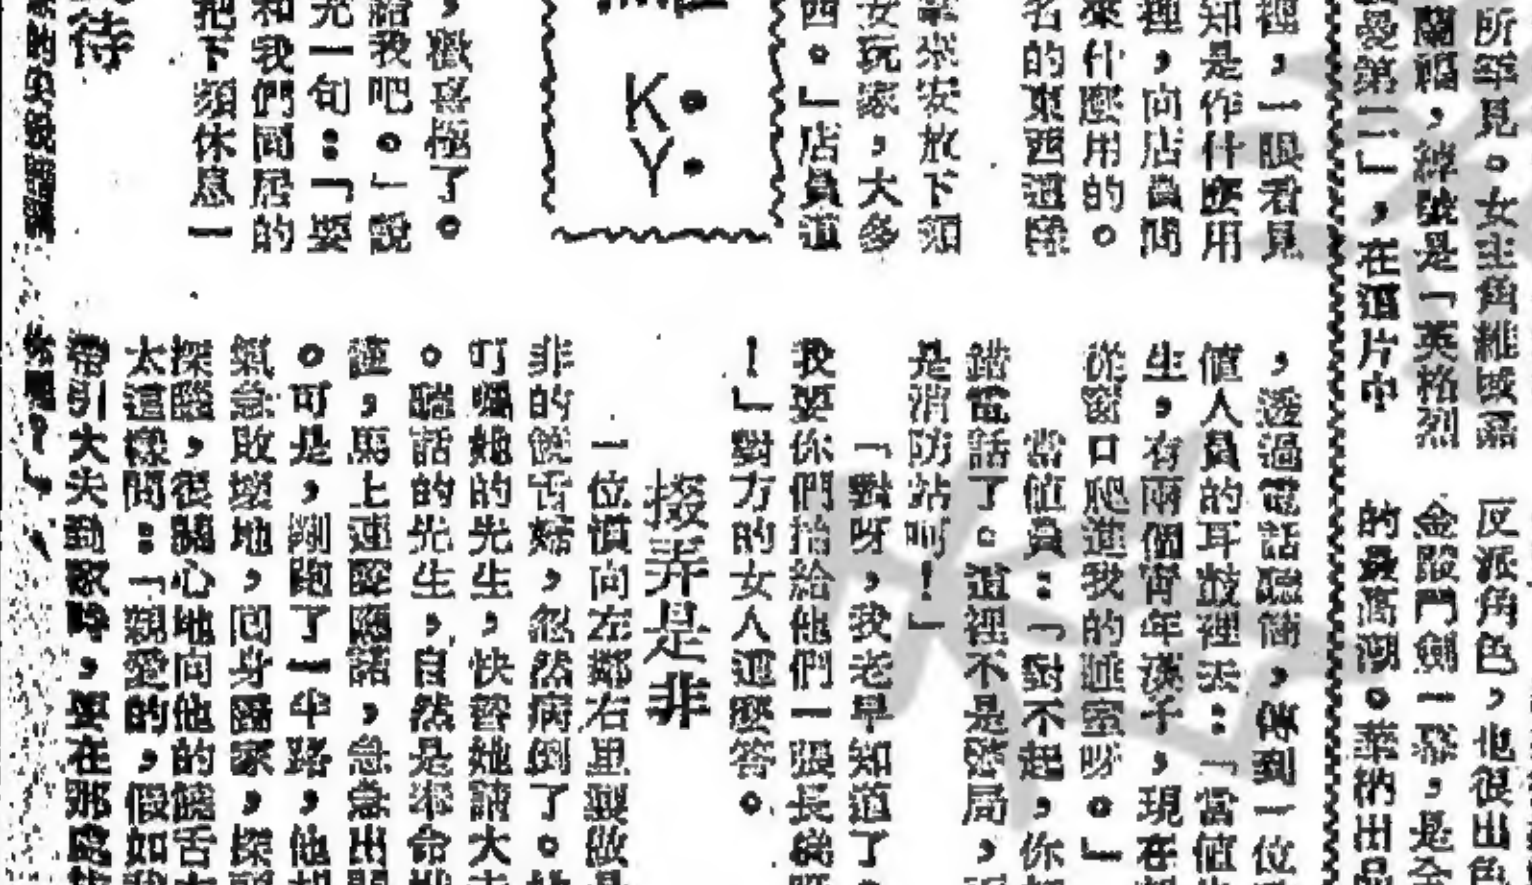 所罕見。女主角維
蘭福，綽號是「英格烈
曼第二」，在這片中
反派角色，也很出色
金殿門劍一幕，是全
的最高潮。華納出品
裡，一眼看見
知是作什麼用
裡，向店員問
來什麼用的。
名的東西這樣
來安放下頦
女玩家，大多
西。」店員道
K.
Y.
，歡喜極了。
給我吧。」說
充一句：「要
和我們同居的
把下頦休息一
待
，透過電話聽筒，傳到一位
值人員的耳鼓裡去：「當值
生，有兩個青年漢子，現在
從窗口爬進我的睡室呀。」
當值員：「對不起，你
錯電話了。這裡不是警局，
是消防站呵！」
「對呀，我老早知道了。
我要你們抬給他們一張長梯
！」對方的女人這麼答。
掇弄是非
一位慣向左鄰右里製做是
非的饒舌婦，忽然病倒了。她
叮囑她的先生，快替她請大夫
。聽話的先生，自然是奉命
，馬上連聲應話，急急出門
。可是，剛跑了一半路，他却
氣急敗壞地，回身歸家，探頭
探腦，很關心地向他的饒舌太
太這樣問：「親愛的，假如我
帶引大夫到家時，要在那處找